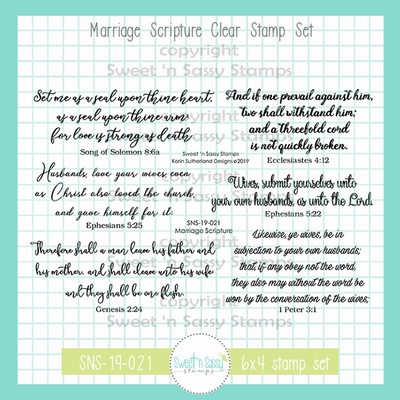 Marriage Scripture Clear Stamp Set
copyright
Sweet 'n Sassy Stamps
Set me as a seal upon thine heart,
as a seal upon thine arm:
for love is strong as death
Song of Solomon 8:6a
And if one prevail against him,
two shall withstand him;
and a threefold cord
is not quickly broken.
Ecclesiastes 4:12
Sweet 'n Sassy Stamps
Korin Sutherland Designs©2019
Husbands, love your wives, even
as Christ also loved the church,
and gave himself for it.
Ephesians 5:25
copyright
Sweet 'n Sassy Stamps
Wives, submit yourselves unto
your own husbands, as unto the Lord.
Ephesians 5:22
SNS-19-021
Marriage Scripture
Therefore shall a man leave his father and
his mother, and shall cleave unto his wife
and they shall be one flesh.
Genesis 2:24
Likewise, ye wives, be in
subjection to your own husbands;
that, if any obey not the word,
they also may without the word be
won by the conversation of the wives;
1 Peter 3:1
copyright
Sweet 'n Sassy Stamps
SNS-19-021
Sweet 'n Sassy
stamps
6x4 stamp set